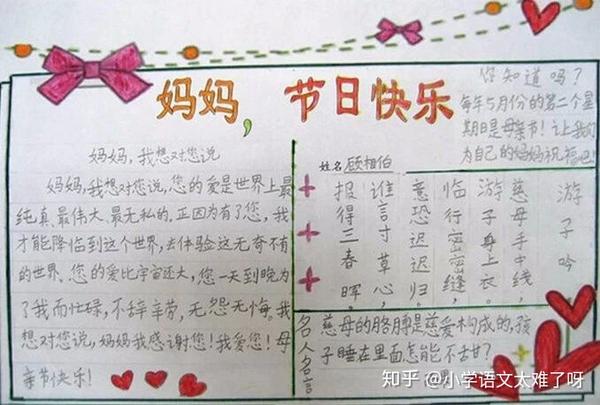 妈妈，节日快乐
你知道吗？
每年5月份的第二个星
期日是母亲节！让我们
为自己的妈妈祝福吧！
妈妈，我想对您说
妈妈，我想对您说，您的爱是世界上最
纯真、最伟大、最无私的。正因为有了您，我
才能降临到这个世界，去体验这无奇不有
的世界。您的爱比宇宙还大，您一天到晚为
了我而忙碌，不辞辛劳，无怨无悔。我
想对您说，妈妈我感谢您！我爱您！母
亲节快乐！
姓名 顾相伯
游子吟
慈母手中线，
游子身上衣。
临行密密缝，
意恐迟迟归。
谁言寸草心，
报得三春晖。
名人名言
慈母的胳膊是慈爱构成的，孩
子睡在里面怎能不甜？
知乎 @小学语文太难了呀